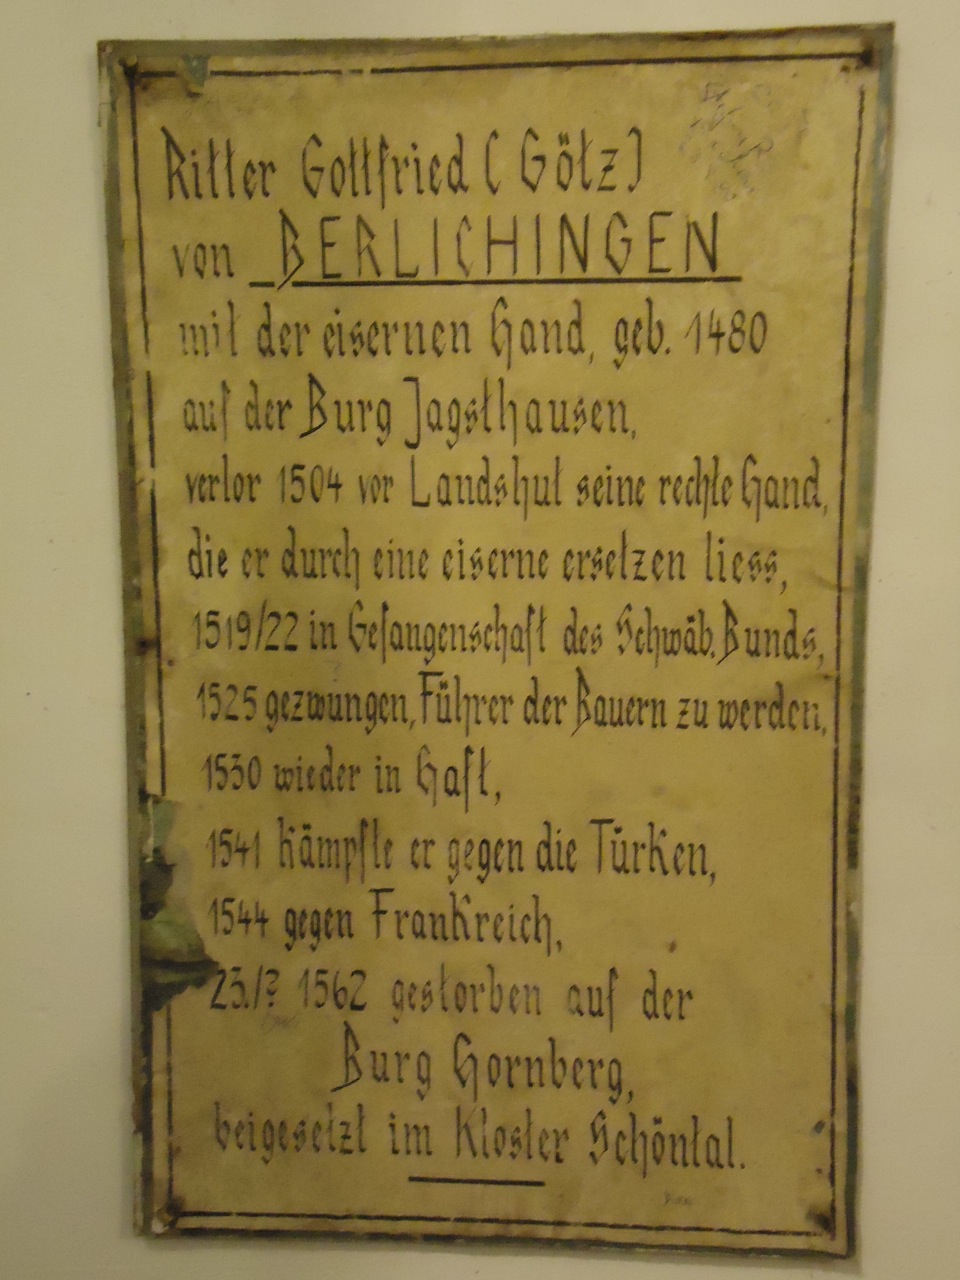 Ritter Gottfried (Götz)
von BERLICHINGEN
mit der eisernen Hand, geb. 1480
auf der Burg Jagsthausen,
verlor 1504 vor Landshut seine rechte Hand,
die er durch eine eiserne ersetzen liess,
1519/22 in Gefangenschaft des Schwäb. Bunds,
1525 gezwungen, Führer der Bauern zu werden,
1530 wieder in Haft,
1541 kämpfte er gegen die Türken,
1544 gegen Frankreich,
23./? 1562 gestorben auf der
Burg Hornberg,
beigesetzt im Kloster Schöntal.